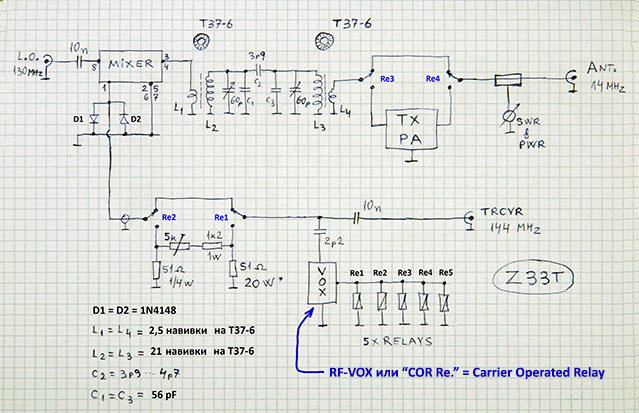 T37-6
T37-6
L.O.
130MHz
10n
MIXER
8
3
4
1
2
5
6
7
3p9
L1
L2
60p
C1
C3
60p
L3
L4
Re3
Re4
TX
PA
ANT.
14 MHz
SWR
&
PWR
D1
D2
Re2
Re1
10n
TRCVR
144 MHz
5k
1k2
1W
51Ω
1/4W
51Ω
20W*
2p2
VOX
Re1
Re2
Re3
Re4
Re5
5 x RELAYS
Z33T
D1 = D2 = 1N4148
L1 = L4 = 2,5 навивки на T37-6
L2 = L3 = 21 навивки на T37-6
C2 = 3p9 ... 4p7
C1 = C3 = 56 pF
RF-VOX или “COR Re.” = Carrier Operated Relay